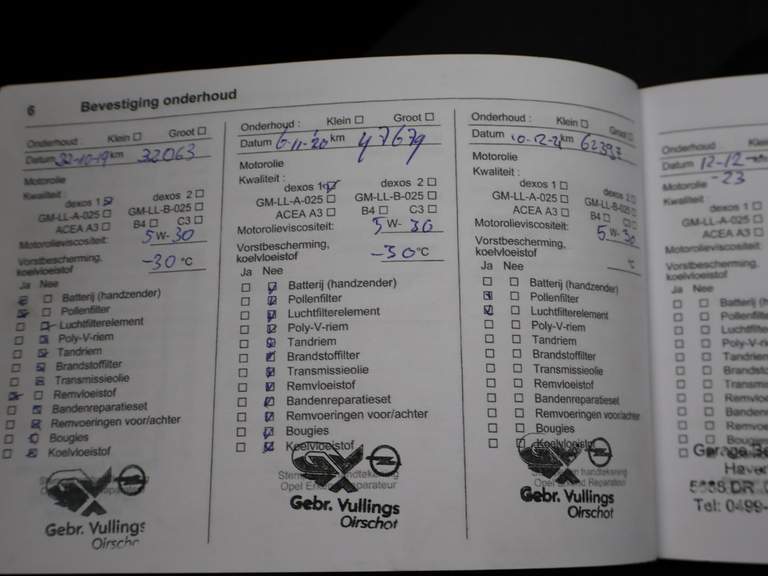 6 Bevestiging onderhoud
Onderhoud : Klein ☐ Groot ☐
Datum 22-10-19 km 32063
Motorolie
Kwaliteit :
dexos 1 ☑ dexos 2 ☐
GM-LL-A-025 ☐ GM-LL-B-025 ☐
ACEA A3 ☐ B4 ☐ C3 ☐
Motorolieviscositeit: 5 W- 30
Vorstbescherming,
koelvloeistof -30 °C
Ja Nee
Batterij (handzender)
Pollenfilter
Luchtfilterelement
Poly-V-riem
Tandriem
Brandstoffilter
Transmissieolie
Remvloeistof
Bandenreparatieset
Remvoeringen voor/achter
Bougies
Koelvloeistof
Gebr. Vullings
Oirschot
Onderhoud : Klein ☐ Groot ☐
Datum 6-11-'20 km 47679
Motorolie
Kwaliteit :
dexos 1 ☑ dexos 2 ☐
GM-LL-A-025 ☐ GM-LL-B-025 ☐
ACEA A3 ☐ B4 ☐ C3 ☐
Motorolieviscositeit: 5 W- 30
Vorstbescherming,
koelvloeistof -30 °C
Ja Nee
Batterij (handzender)
Pollenfilter
Luchtfilterelement
Poly-V-riem
Tandriem
Brandstoffilter
Transmissieolie
Remvloeistof
Bandenreparatieset
Remvoeringen voor/achter
Bougies
Koelvloeistof
Gebr. Vullings
Oirschot
Onderhoud : Klein ☐ Groot ☐
Datum 10-12-21 km 62397
Motorolie
Kwaliteit :
dexos 1 ☐ dexos 2 ☐
GM-LL-A-025 ☐ GM-LL-B-025 ☐
ACEA A3 ☐ B4 ☐ C3 ☐
Motorolieviscositeit: 5 W- 30
Vorstbescherming,
koelvloeistof °C
Ja Nee
Batterij (handzender)
Pollenfilter
Luchtfilterelement
Poly-V-riem
Tandriem
Brandstoffilter
Transmissieolie
Remvloeistof
Bandenreparatieset
Remvoeringen voor/achter
Bougies
Koelvloeistof
Gebr. Vullings
Oirschot
Onderhoud : Klein
Datum 12-12
Motorolie -23
Kwaliteit :
dexos 1 ☐
GM-LL-A-025 ☐
ACEA A3 ☐
Motorolieviscositeit:
Vorstbescherming,
koelvloeistof
Ja Nee
Tel: 0499-